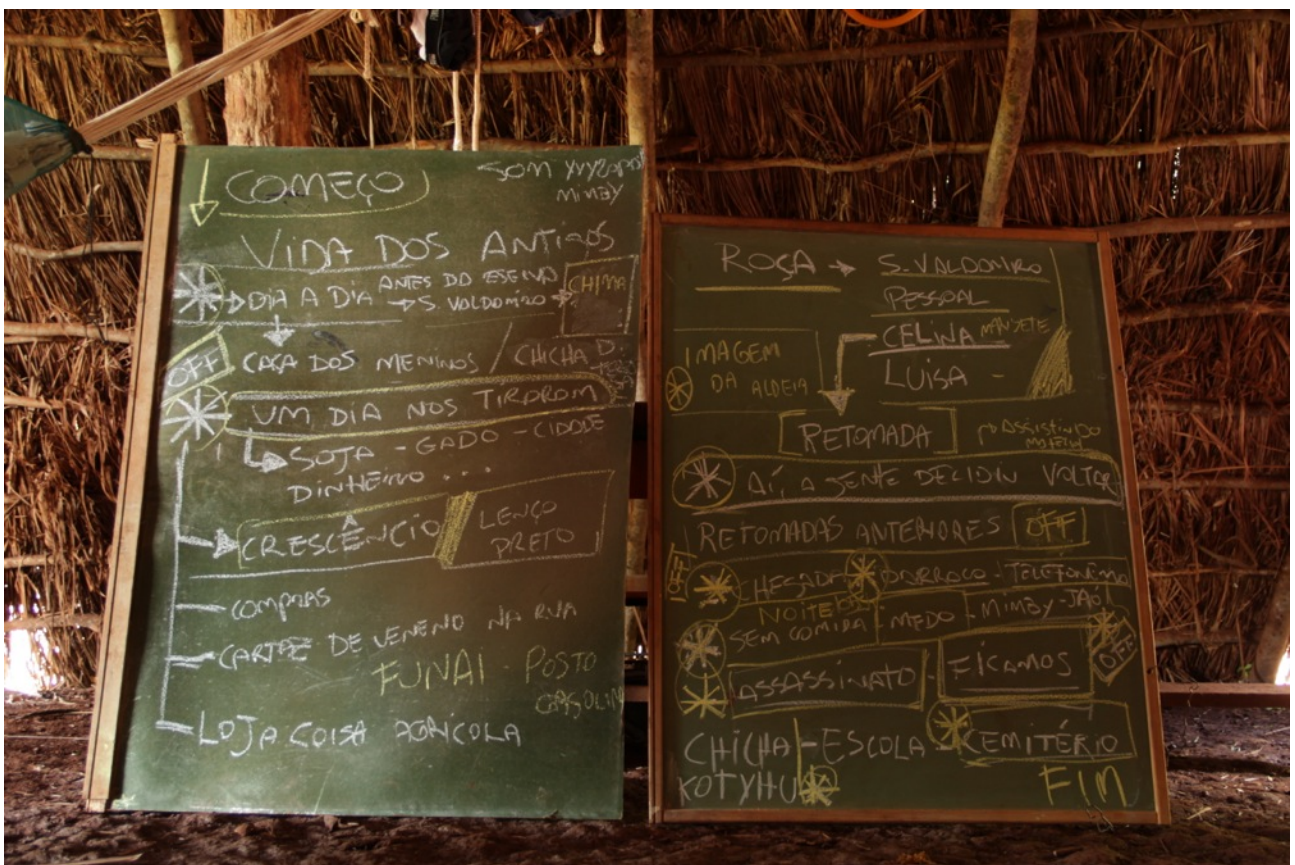 COMEÇO
SOM
MIMBY
VIDA DOS ANTIGOS
DIA A DIA ANTES DO → S. VALDOMIRO →
CHIMA
OFF CAÇA DOS MENINOS / CHICHA D.
UM DIA NOS TIRARAM
SOJA - GADO - CIDADE
DINHEIRO ...
CRESCÊNCIO
LENÇO
PRETO
COMPRAS
CARTAZ DE VENENO NA RUA
FUNAI - POSTO
GASOLINA
LOJA COISA AGRÍCOLA
ROÇA → S. VALDOMIRO
PESSOAL
CELINA
LUISA -
IMAGEM
DA ALDEIA
RETOMADA
ASSISTINDO
AÍ, A GENTE DECIDIU VOLTAR
RETOMADAS ANTERIORES OFF
OFF CHEGADA BARRACO - TELEFONEMA
NOITE
SEM COMIDA - MEDO - MIMBY - JAÓ
OFF
ASSASSINATO - FICAMOS
CHICHA - ESCOLA - CEMITÉRIO
KOTYHU
FIM